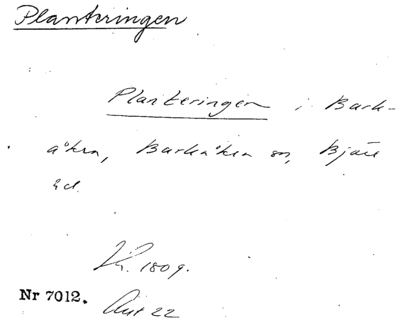 Planteringen
Planteringen i Bark-
åkra, Barkåkra sn, Bjäre
hd.
1809.
Nr 7012.
Avt 22